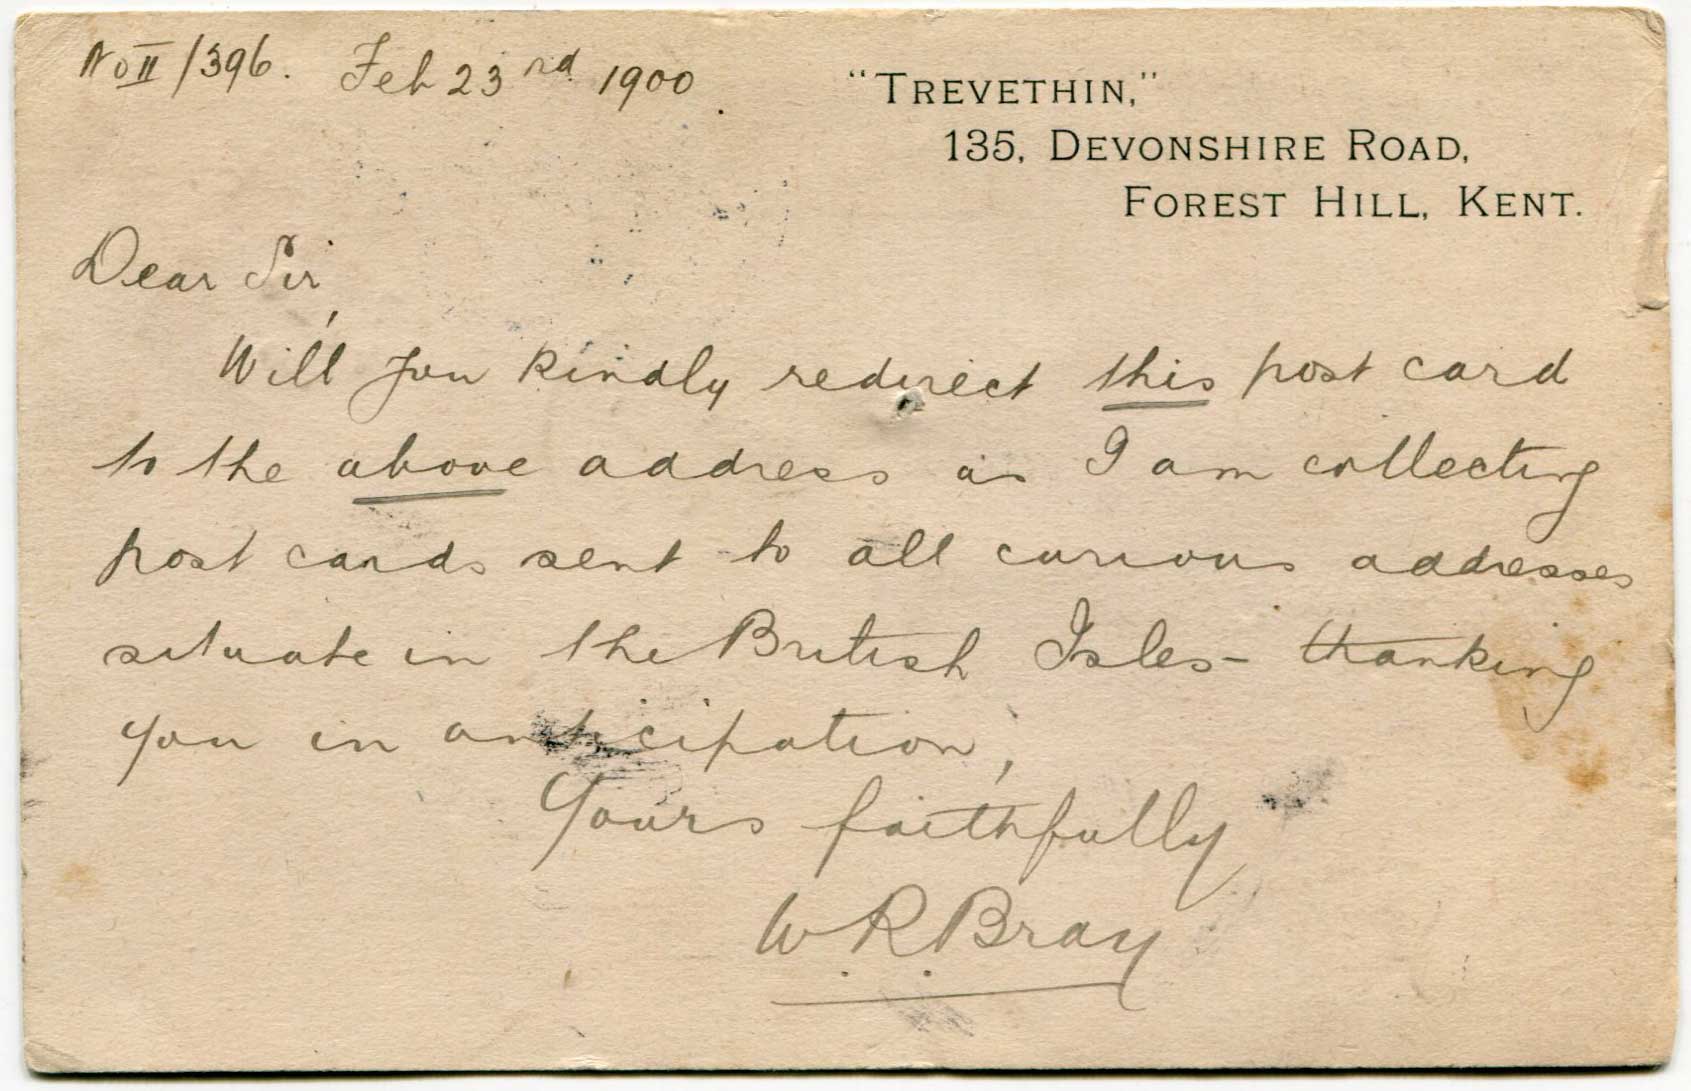 No II /396. Feb 23rd 1900.
"TREVETHIN,"
135, DEVONSHIRE ROAD,
FOREST HILL, KENT.
Dear Sir,
Will you kindly redirect this post card
to the above address as I am collecting
post cards sent to all curious addresses
situate in the British Isles - thanking
you in anticipation,
Yours faithfully
W. R. Bray